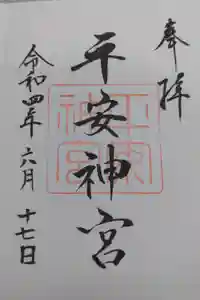 奉拝
平安神宮
令和四年六月十七日